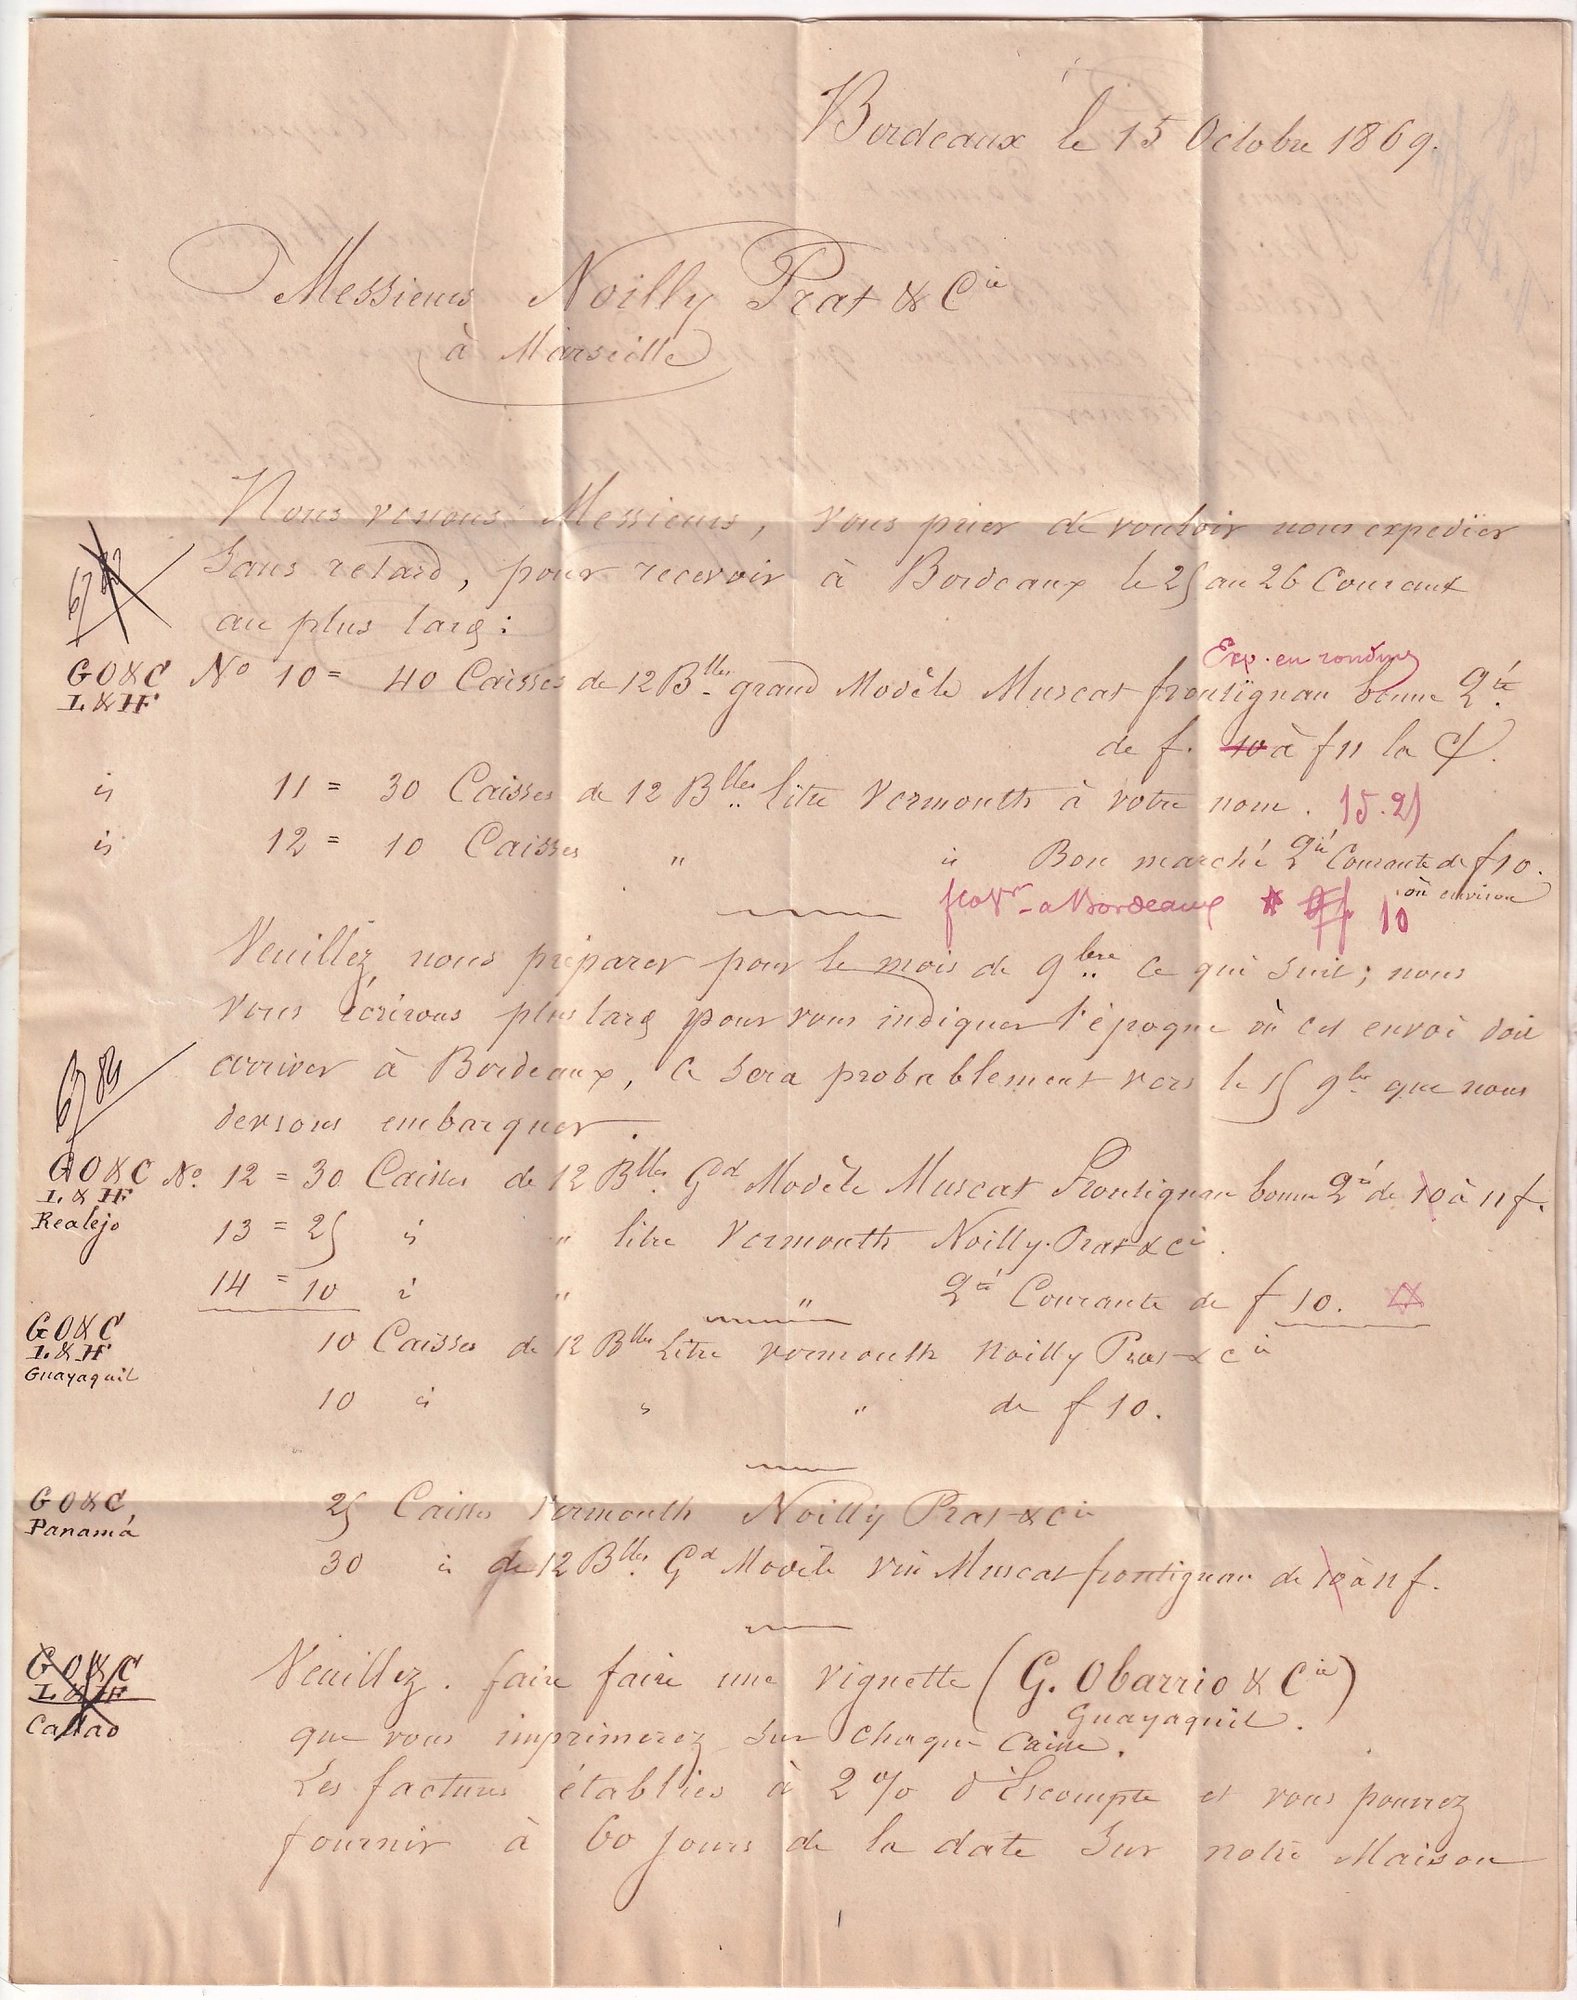 Bordeaux le 15 Octobre 1869.
Messieurs Noilly Prat & Cie
à Marseille
Nous venons Messieurs, vous prier de vouloir nous expedier
Sans retard, pour recevoir à Bordeaux le 25 au 26 Courant
au plus tard:
Exp. en
GO&C N° 10 = 40 Caisses de 12 Blles grand Modèle Muscat frontignan bonne Qté
L&H
de f. 10 à f 11 la C/.
is 11 = 30 Caisses de 12 Blles litre Vermouth à votre nom. 15.25
is 12 = 10 Caisses " is Bon marché Qté Courante de f 10.
ou environ
à Bordeaux 10
Veuillez nous préparer pour le mois de 9bre ce qui suit; nous
vous écrirons plus tard pour vous indiquer l'époque où cet envoi doit
arriver à Bordeaux, ce sera probablement vers le 15 9bre que nous
devrons embarquer.
GO&C N° 12 = 30 Caisses de 12 Blles Gd Modèle Muscat Frontignan bonne Qté de 10 à 11 f.
L&H
Realejo 13 = 25 is " litre Vermouth Noilly Prat & Cie.
14 = 10 i " " Qté Courante de f 10.
GO&C
L&H 10 Caisses de 12 Blles Litre vermouth Noilly Prat & Cie
Guayaquil
10 is " " de f 10.
GO&C 25 Caisses Vermouth Noilly Prat & Cie
Panamá
30 is de 12 Blles Gd Modèle vin Muscat frontignan de 10 à 11 f.
GO&C Veuillez faire faire une vignette (G. Obarrio & Cie)
L&H
Guayaquil.
Callao que vous imprimerez sur chaque Caisse.
Les factures établies à 2 % d'Escompte et vous pourrez
fournir à 60 jours de la date sur notre Maison